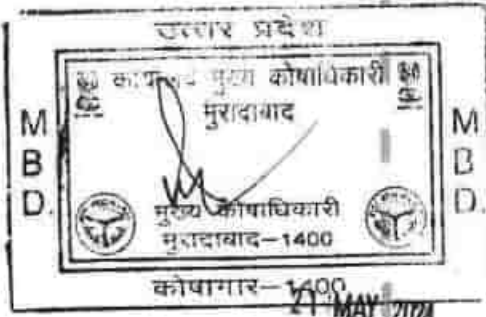 उत्तर प्रदेश
मुख्य कोषाधिकारी
मुरादाबाद
M
B
D.
M
B
D.
मुख्य कोषाधिकारी
मुरादाबाद-1400
कोषागार-1400
21 MAY 2024